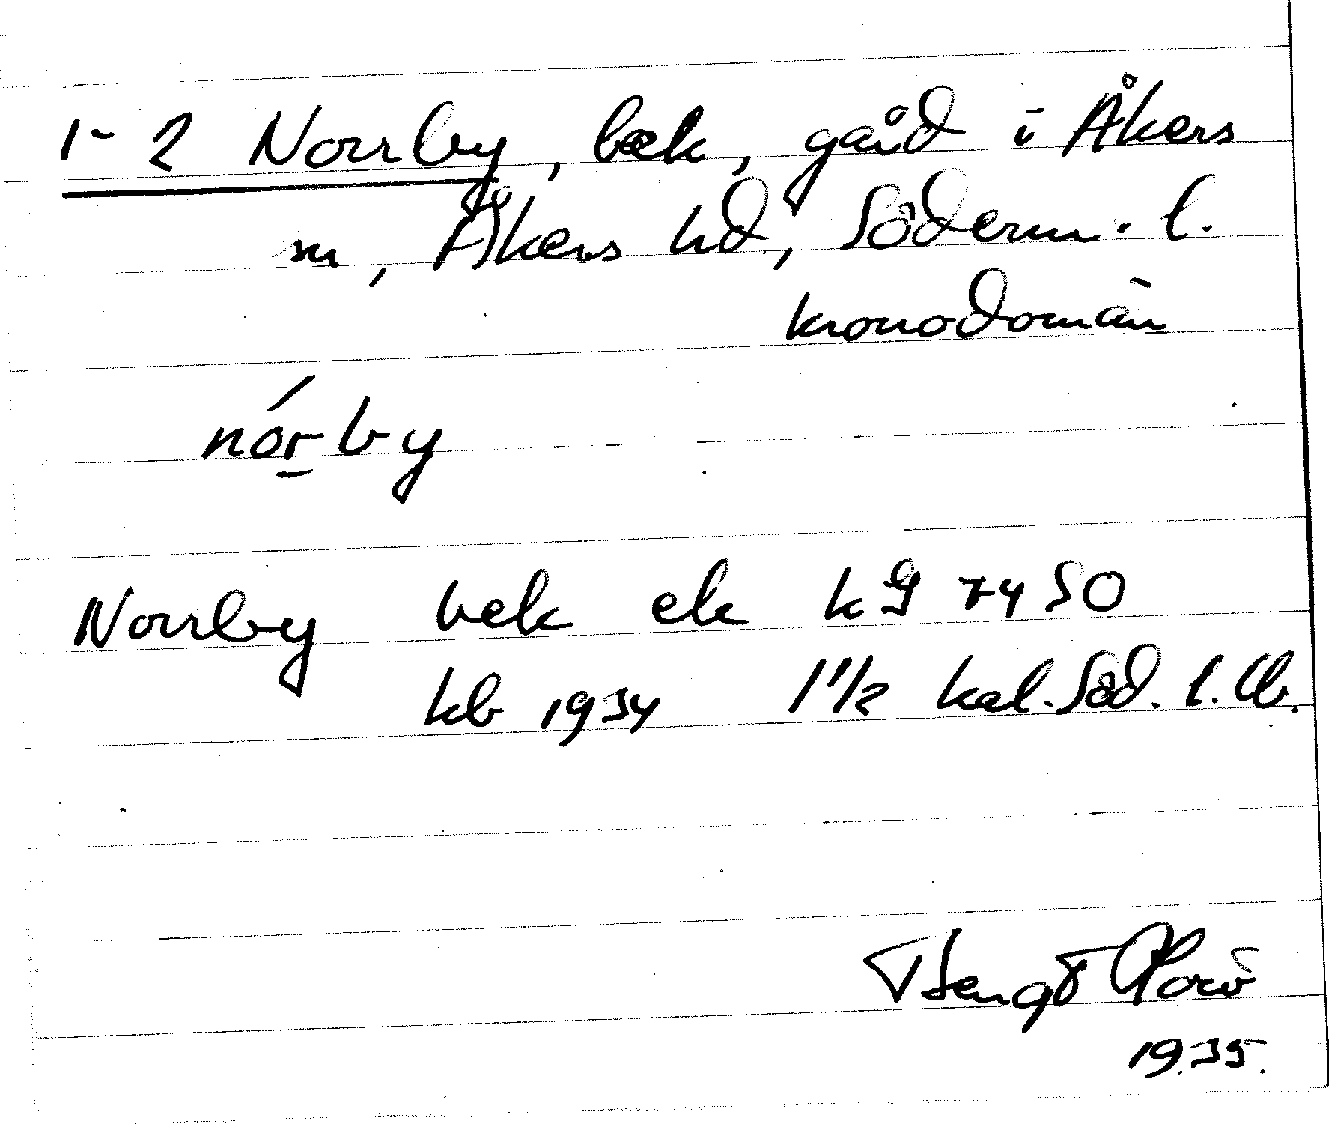 1-2 Norrby, bek, gård i Åkers
sn, Åkers hd, Söderm. l.
kronodomän
nórby
Norrby bek ek kg 7450
kb 1934 1 1/2 kal. Söd. l.
Bengt
1935.